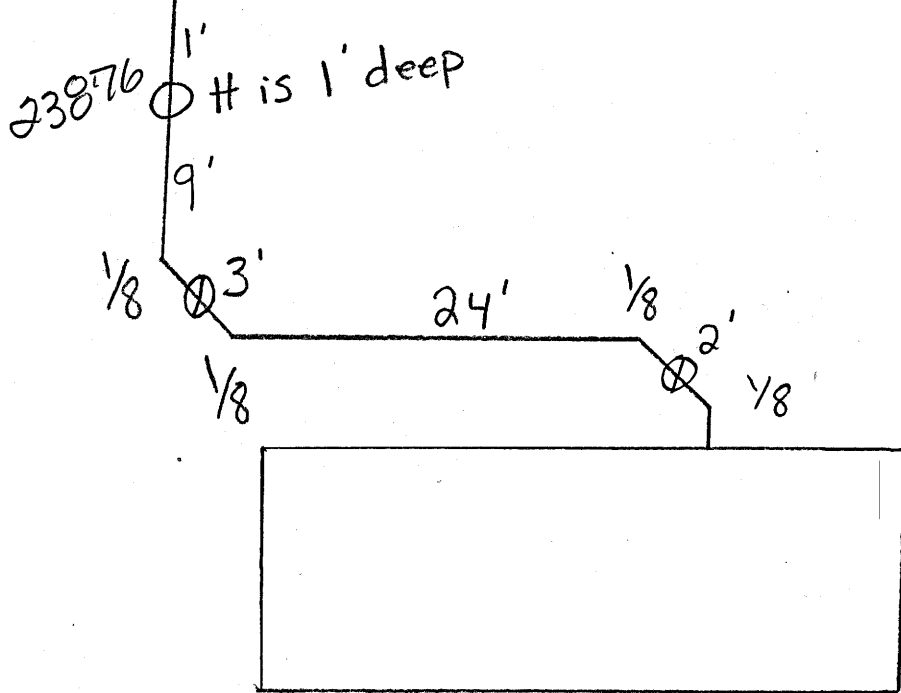 1'
230876 H is 1' deep
9'
1/8 3'
24' 1/8
2'
1/8 1/8